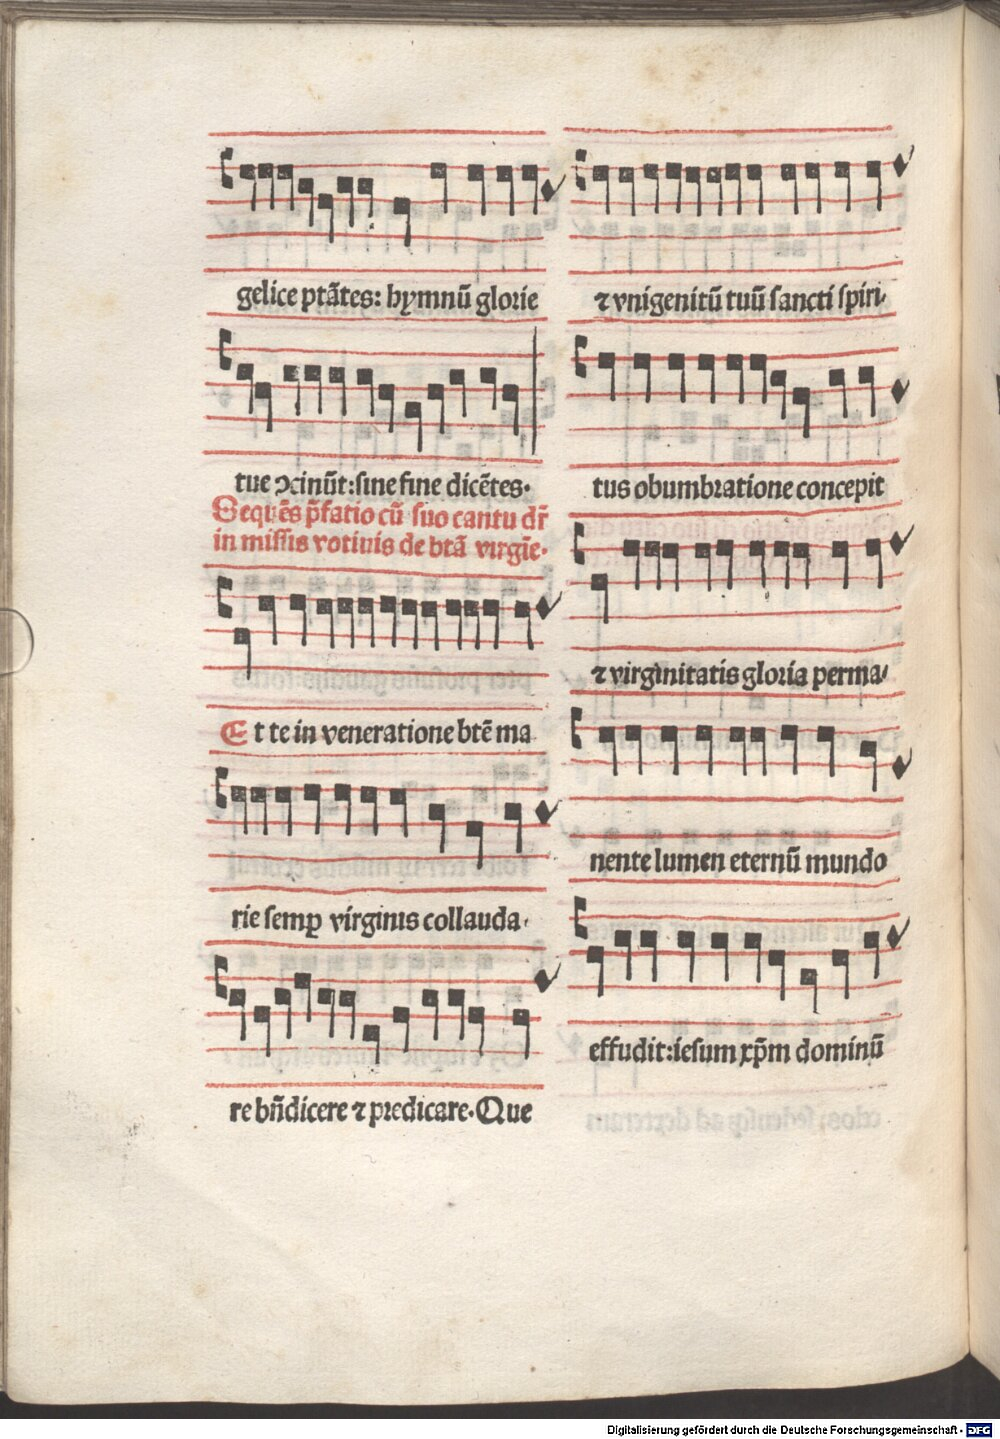 gelice ptãtes: hymnũ glorie
tue ɔcinũt:sine fine dicẽtes.
Sequẽs p̃fatio cũ suo cantu dr̃
in missis votiuis de btã virgĩe.
Et te in veneratione btẽ ma
rie semꝑ virginis collauda-
re bñdicere ⁊ predicare. Que
⁊ vnigenitũ tuũ sancti spiri-
tus obumbratione concepit
⁊ virginitatis gloria perma-
nente lumen eternũ mundo
effudit:iesum xp̃m dominũ
Digitalisierung gefördert durch die Deutsche Forschungsgemeinschaft - DFG